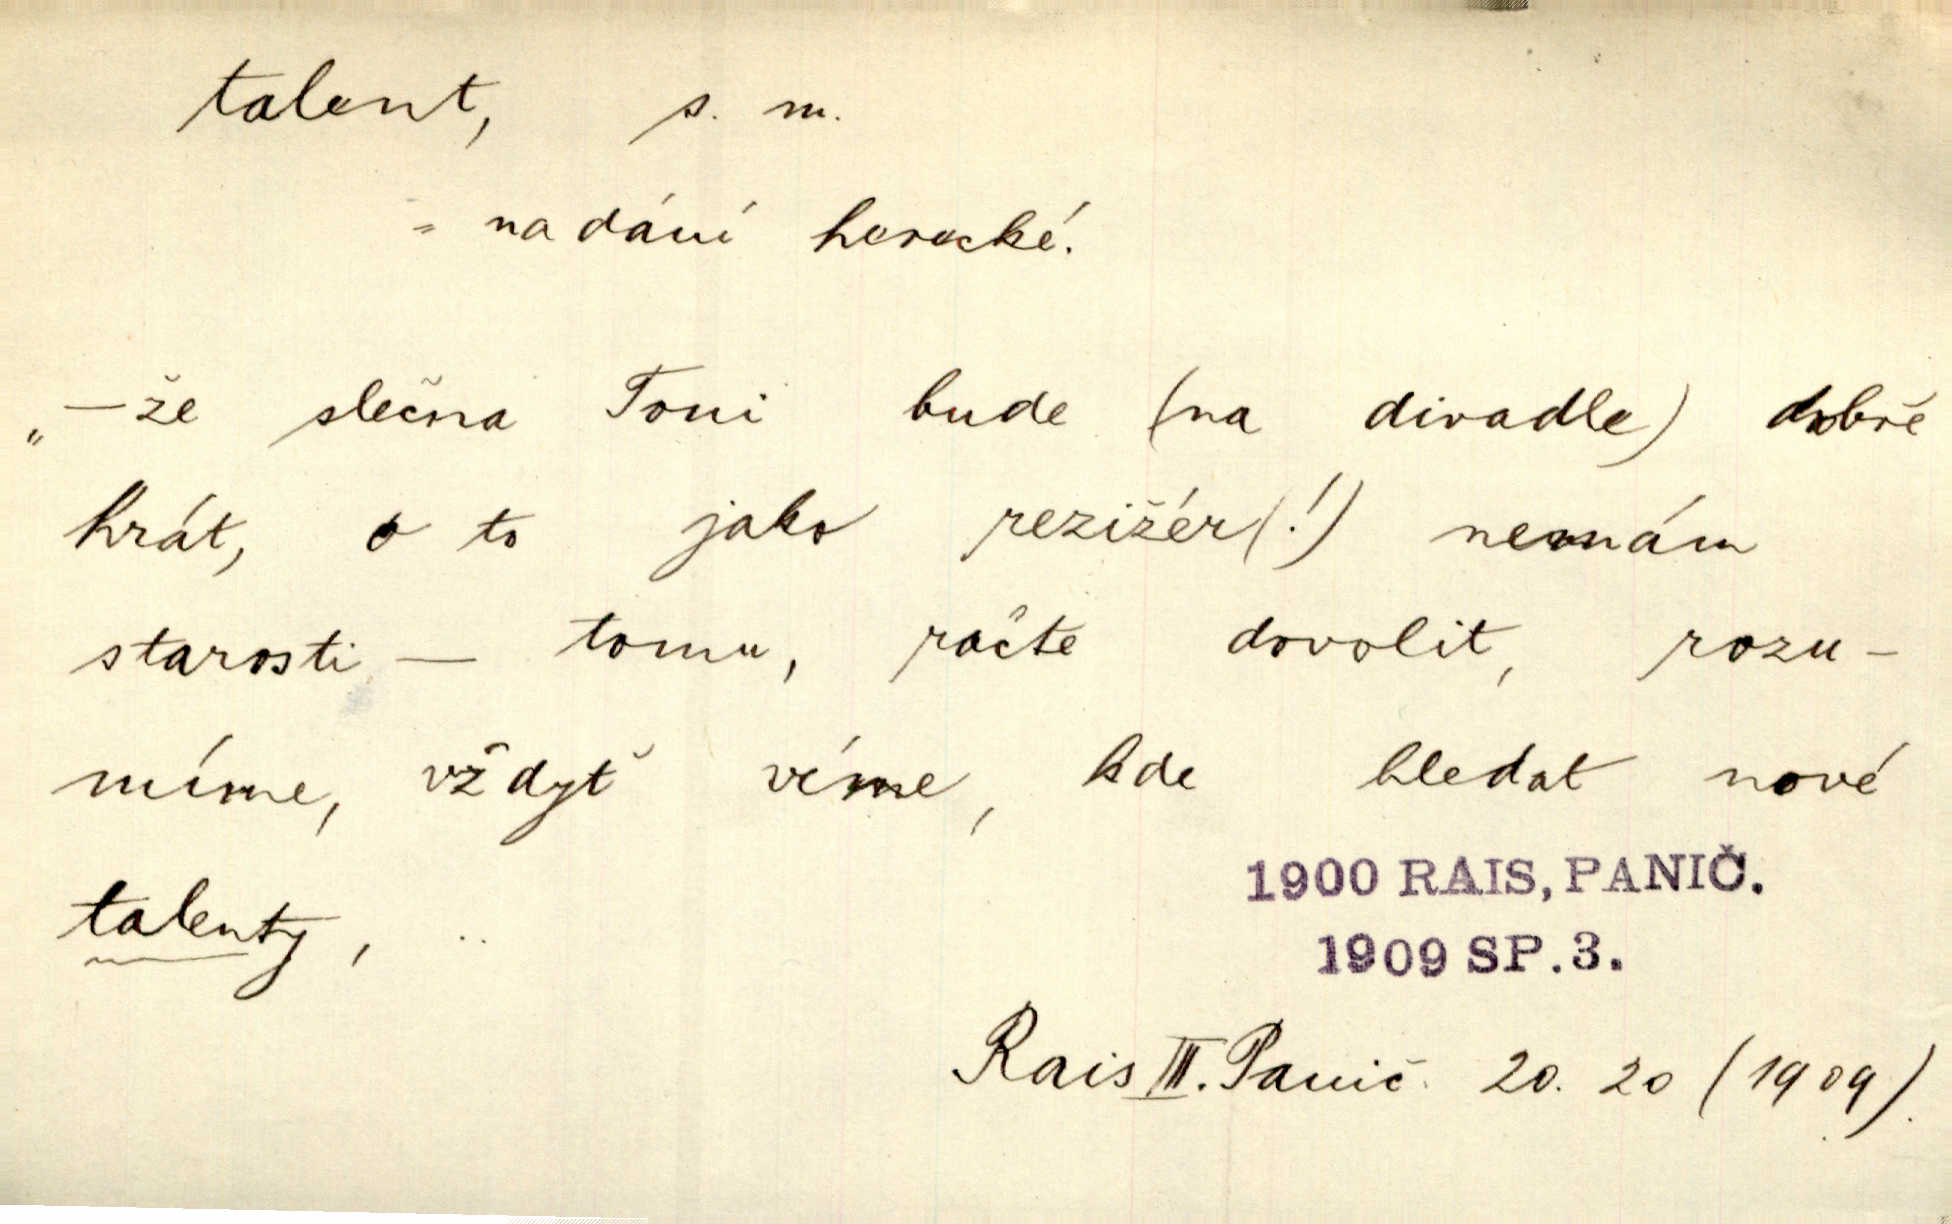 talent, s. m.
= nadání herecké.
„—že slečna Toni bude (na divadle) dobře
hrát, o to jako rezižér(!) nemám
starosti — tomu, račte dovolit, rozu-
míme, vždyť víme, kde hledat nové
talenty, ..
1900 RAIS, PANIČ.
1909 SP. 3.
Rais III. Panič. 20. 20 (1909).